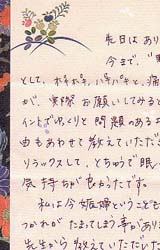 先日はあり
今まで、"
として、ボキボキ、バキバキと、痛
が、実際お願いしてみると
イントでゆっくりと問題のあるお
由もあわせて教えていただい
リラックスして、とちゅうで眠
気持ちが良かったです。
私は今妊婦ということも
つかれがたまってしまう事があり
先生から教えていただいた